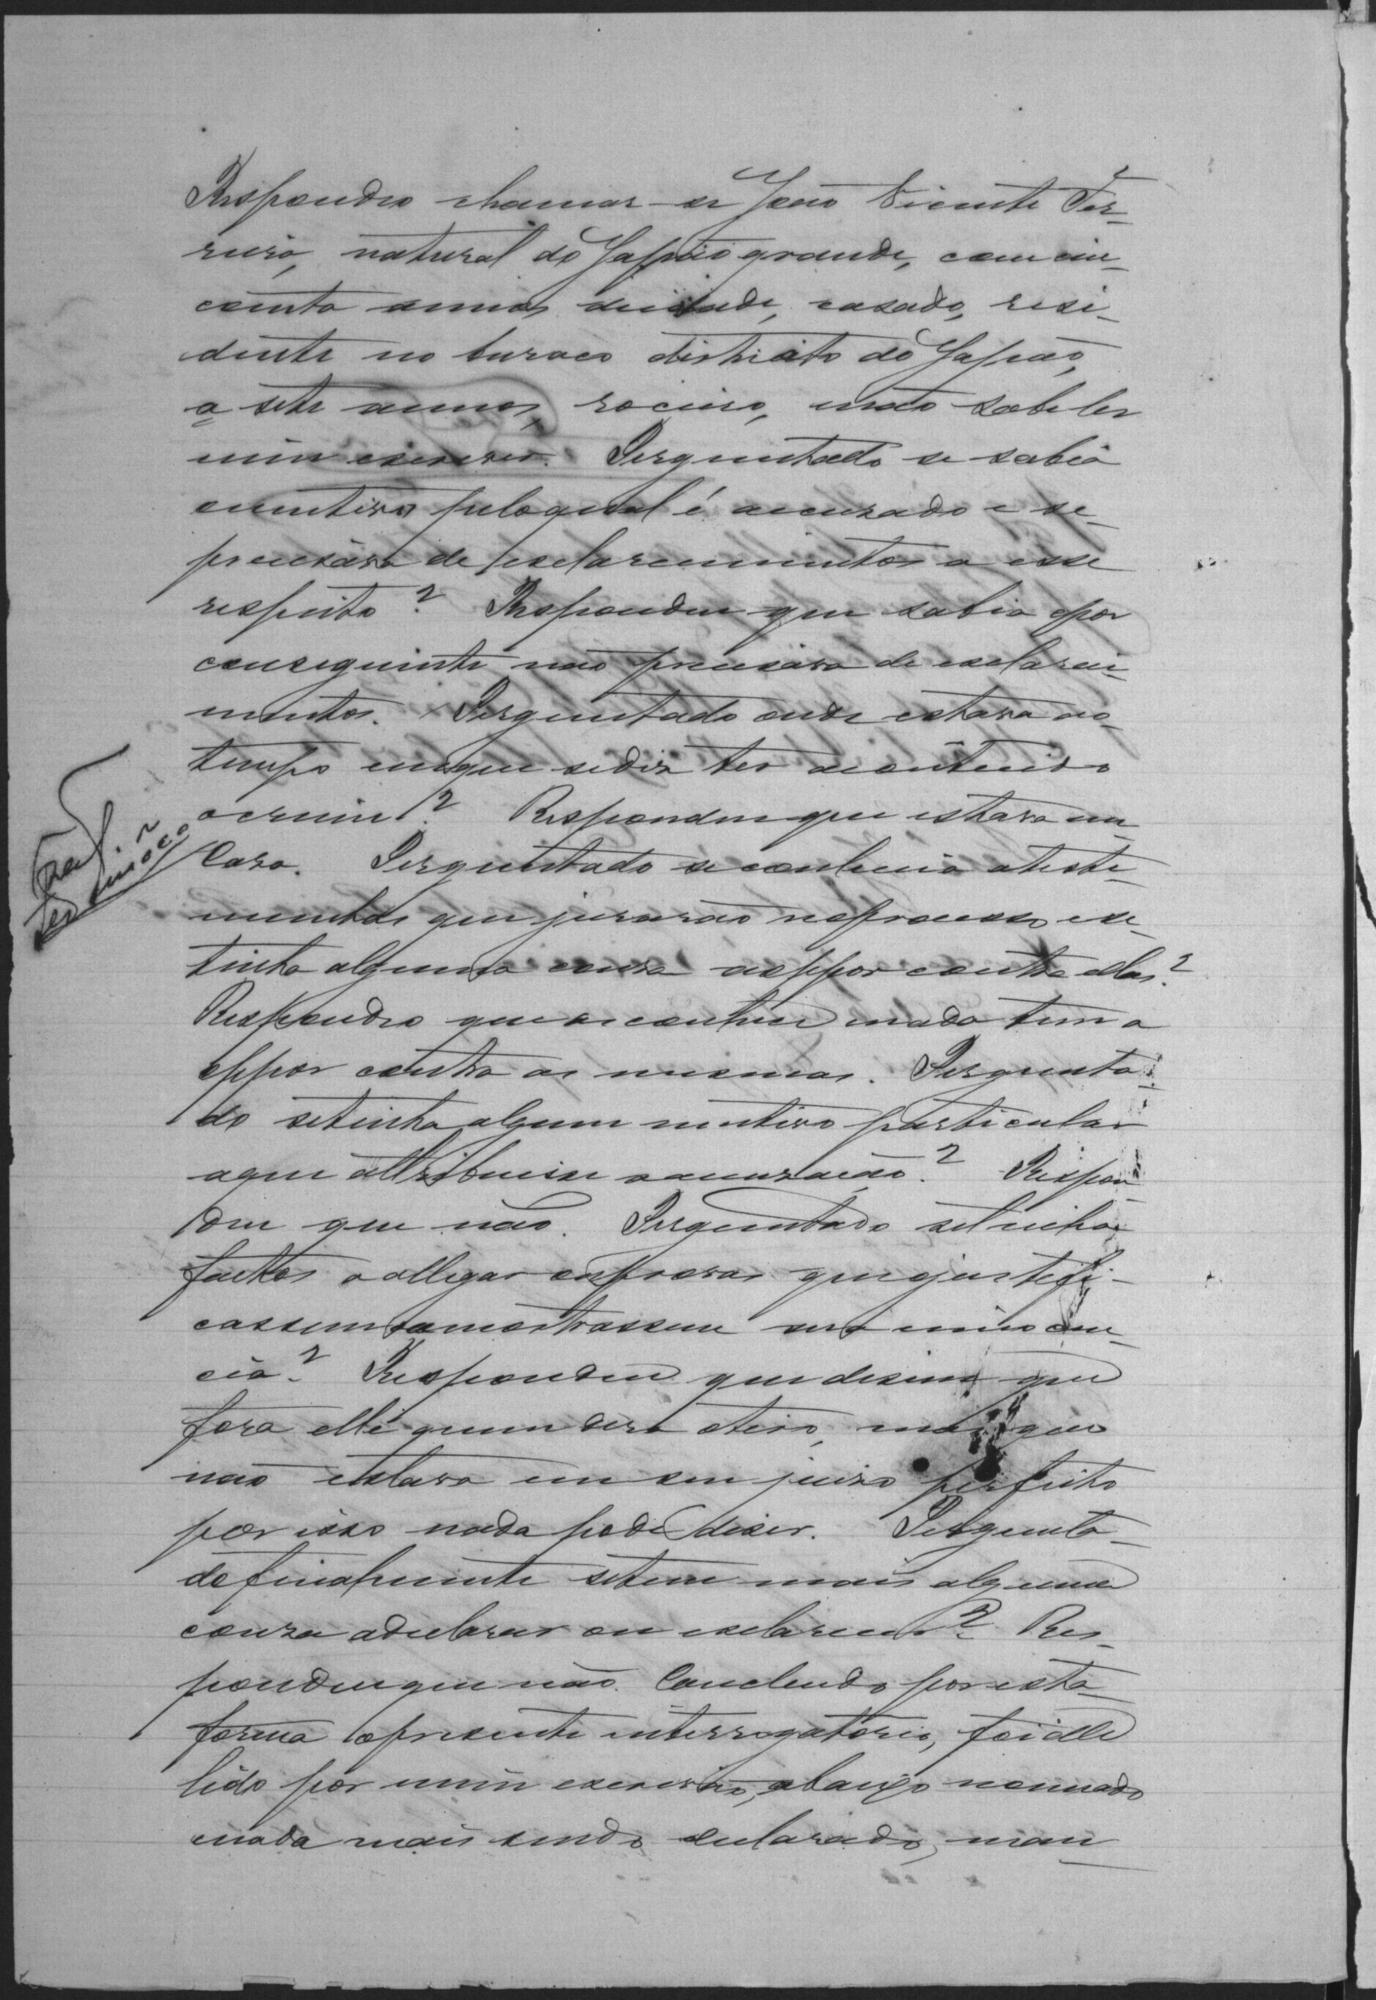 Respondeo chamar-se João Vicente Fer-
reira, natural do Japão grande, com cin-
coenta annos deidade, casado, resi-
dente no buraco districto do Japão,
a sete annos, roceiro, não sabe ler
nem escrever. Perguntado se sabia
omotivo peloqual é accusado e se
precisava de esclarecimentos a esse
respeito? Respondeu que sabia epor
conseguinte não precisava de esclareci-
mentos. Perguntado onde estava ao
tempo emque sediz ter acontecido
ocrime? Respondeu que estava em
Casa. Perguntado se conhecia asteste-
munhas que jurarão noprocesso ese
tinha alguma couza aoppor contra ellas?
Respondeo que as conhece enada tem a
oppor contra as mesmas. Pergunta-
do setinha algum motivo particular
aque attribuisse aaccuzação? Respon-
deu que não. Perguntado setinha
factos a allegar ouprovas quejustifi-
cassem oumostrassem sua innocen-
cia? Respondeu que dizem que
fora elle quem dera otiro, mas que
não estava em seu juizo perfeito
por isso nada pode dizer. Pergunta-
do finalmente setem mais alguma
couza adeclarar ou esclarecer? Res-
pondeu que não. Concluido por esta
forma opresente interrogatorio, foi elle
lido por mim escrivão, abaixo nomeado
enada mais sendo declarado, man